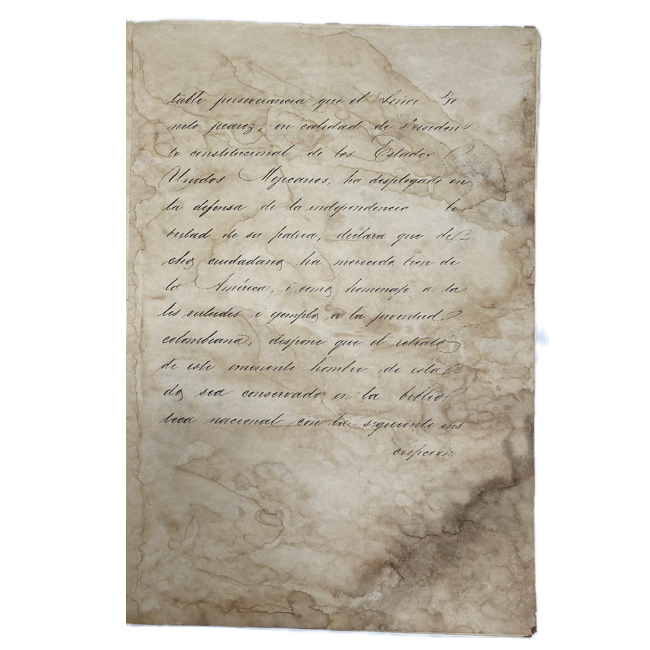 table perseverancia que el Señor Be
nito Juarez, en calidad de Presiden
te constitucional de los Estados
Unidos Mejicanos, ha desplegado en
la defensa de la independencia li
bertad de su patria, declara que di
cho ciudadano ha merecido bien de
la América, i como homenaje a ta
les virtudes i ejemplo a la juventud
colombiana, dispone que el retrato
de este eminente hombre de esta
do sea conservado en la biblio
teca nacional con la siguiente ins
cripcion